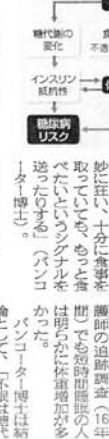 糖代謝の
変化
インスリン
抵抗性
糖尿病
リスク
妙に狂い、十分に食事を
取っていても、もっと食
べたいというシグナルを
送ったりする」(バンコ
ーター博士)。
護師の追跡調査(
間)でも短時間睡眠の人
は明らかに体重増加が多
かった。
バンコーター博士は結